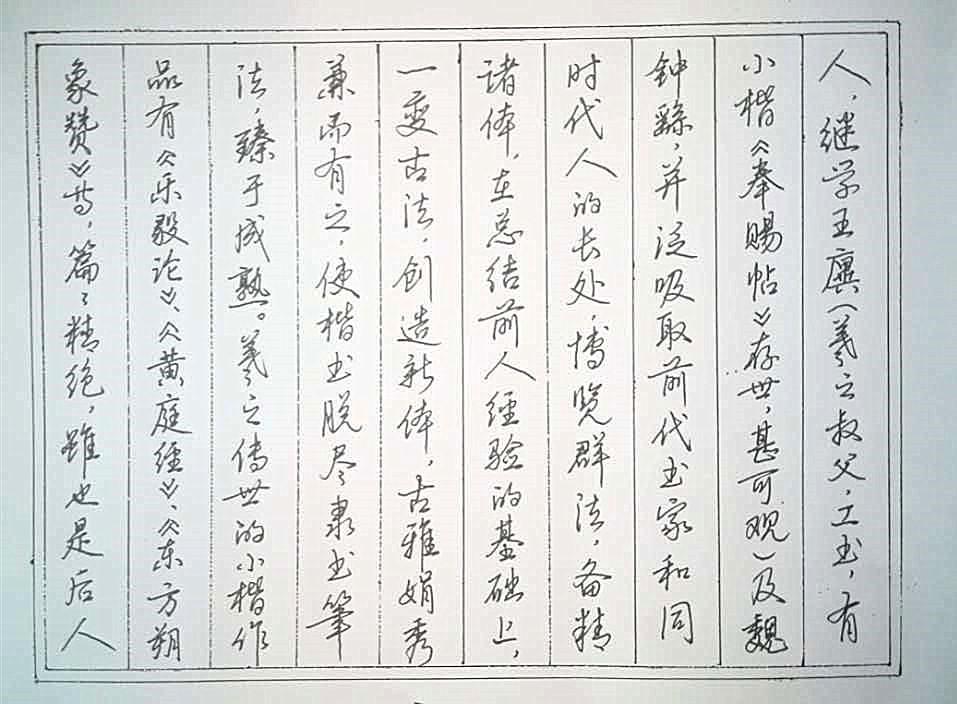 人，继学王廙（羲之叔父，工书，有
小楷《奉赐帖》存世，甚可观）及魏
钟繇，并泛吸取前代书家和同
时代人的长处，博览群法，备精
诸体，在总结前人经验的基础上，
一变古法，创造新体，古雅娟秀
兼而有之，使楷书脱尽隶书笔
法，臻于成熟。羲之传世的小楷作
品有《乐毅论》、《黄庭经》、《东方朔
象赞》等，篇〻精绝，虽也是后人